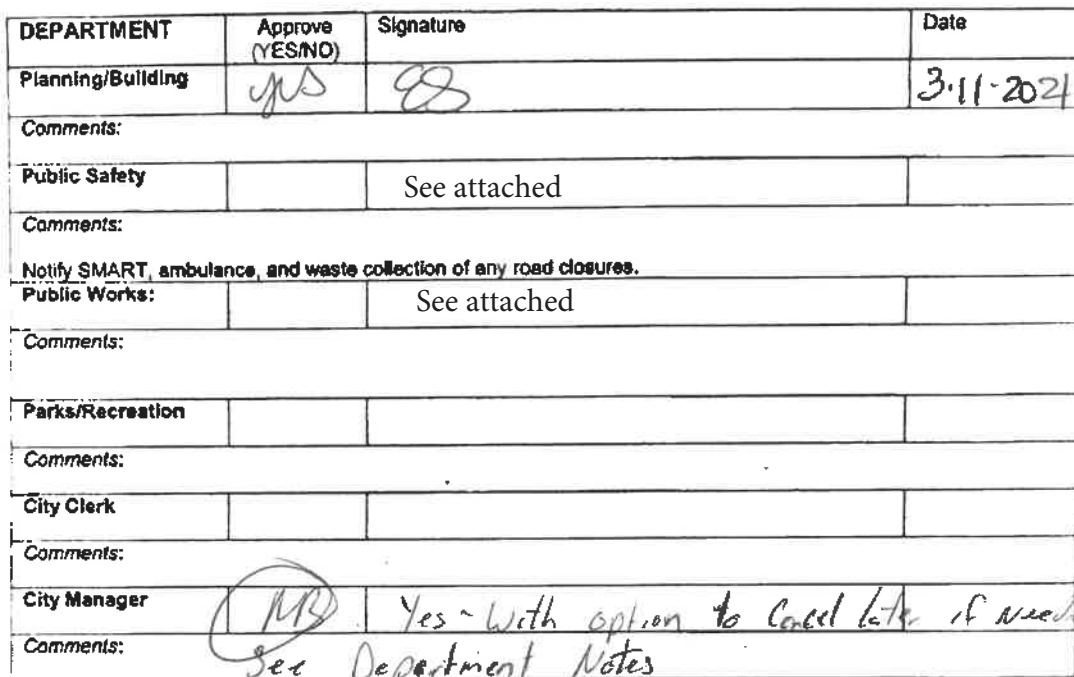 DEPARTMENT Approve Signature Date
(YES/NO)
Planning/Building yes 3-11-2021
Comments:
Public Safety See attached
Comments:
Notify SMART, ambulance, and waste collection of any road closures.
Public Works: See attached
Comments:
Parks/Recreation
Comments:
City Clerk
Comments:
City Manager Yes - With option to Cancel later if Need
Comments: See Department Notes